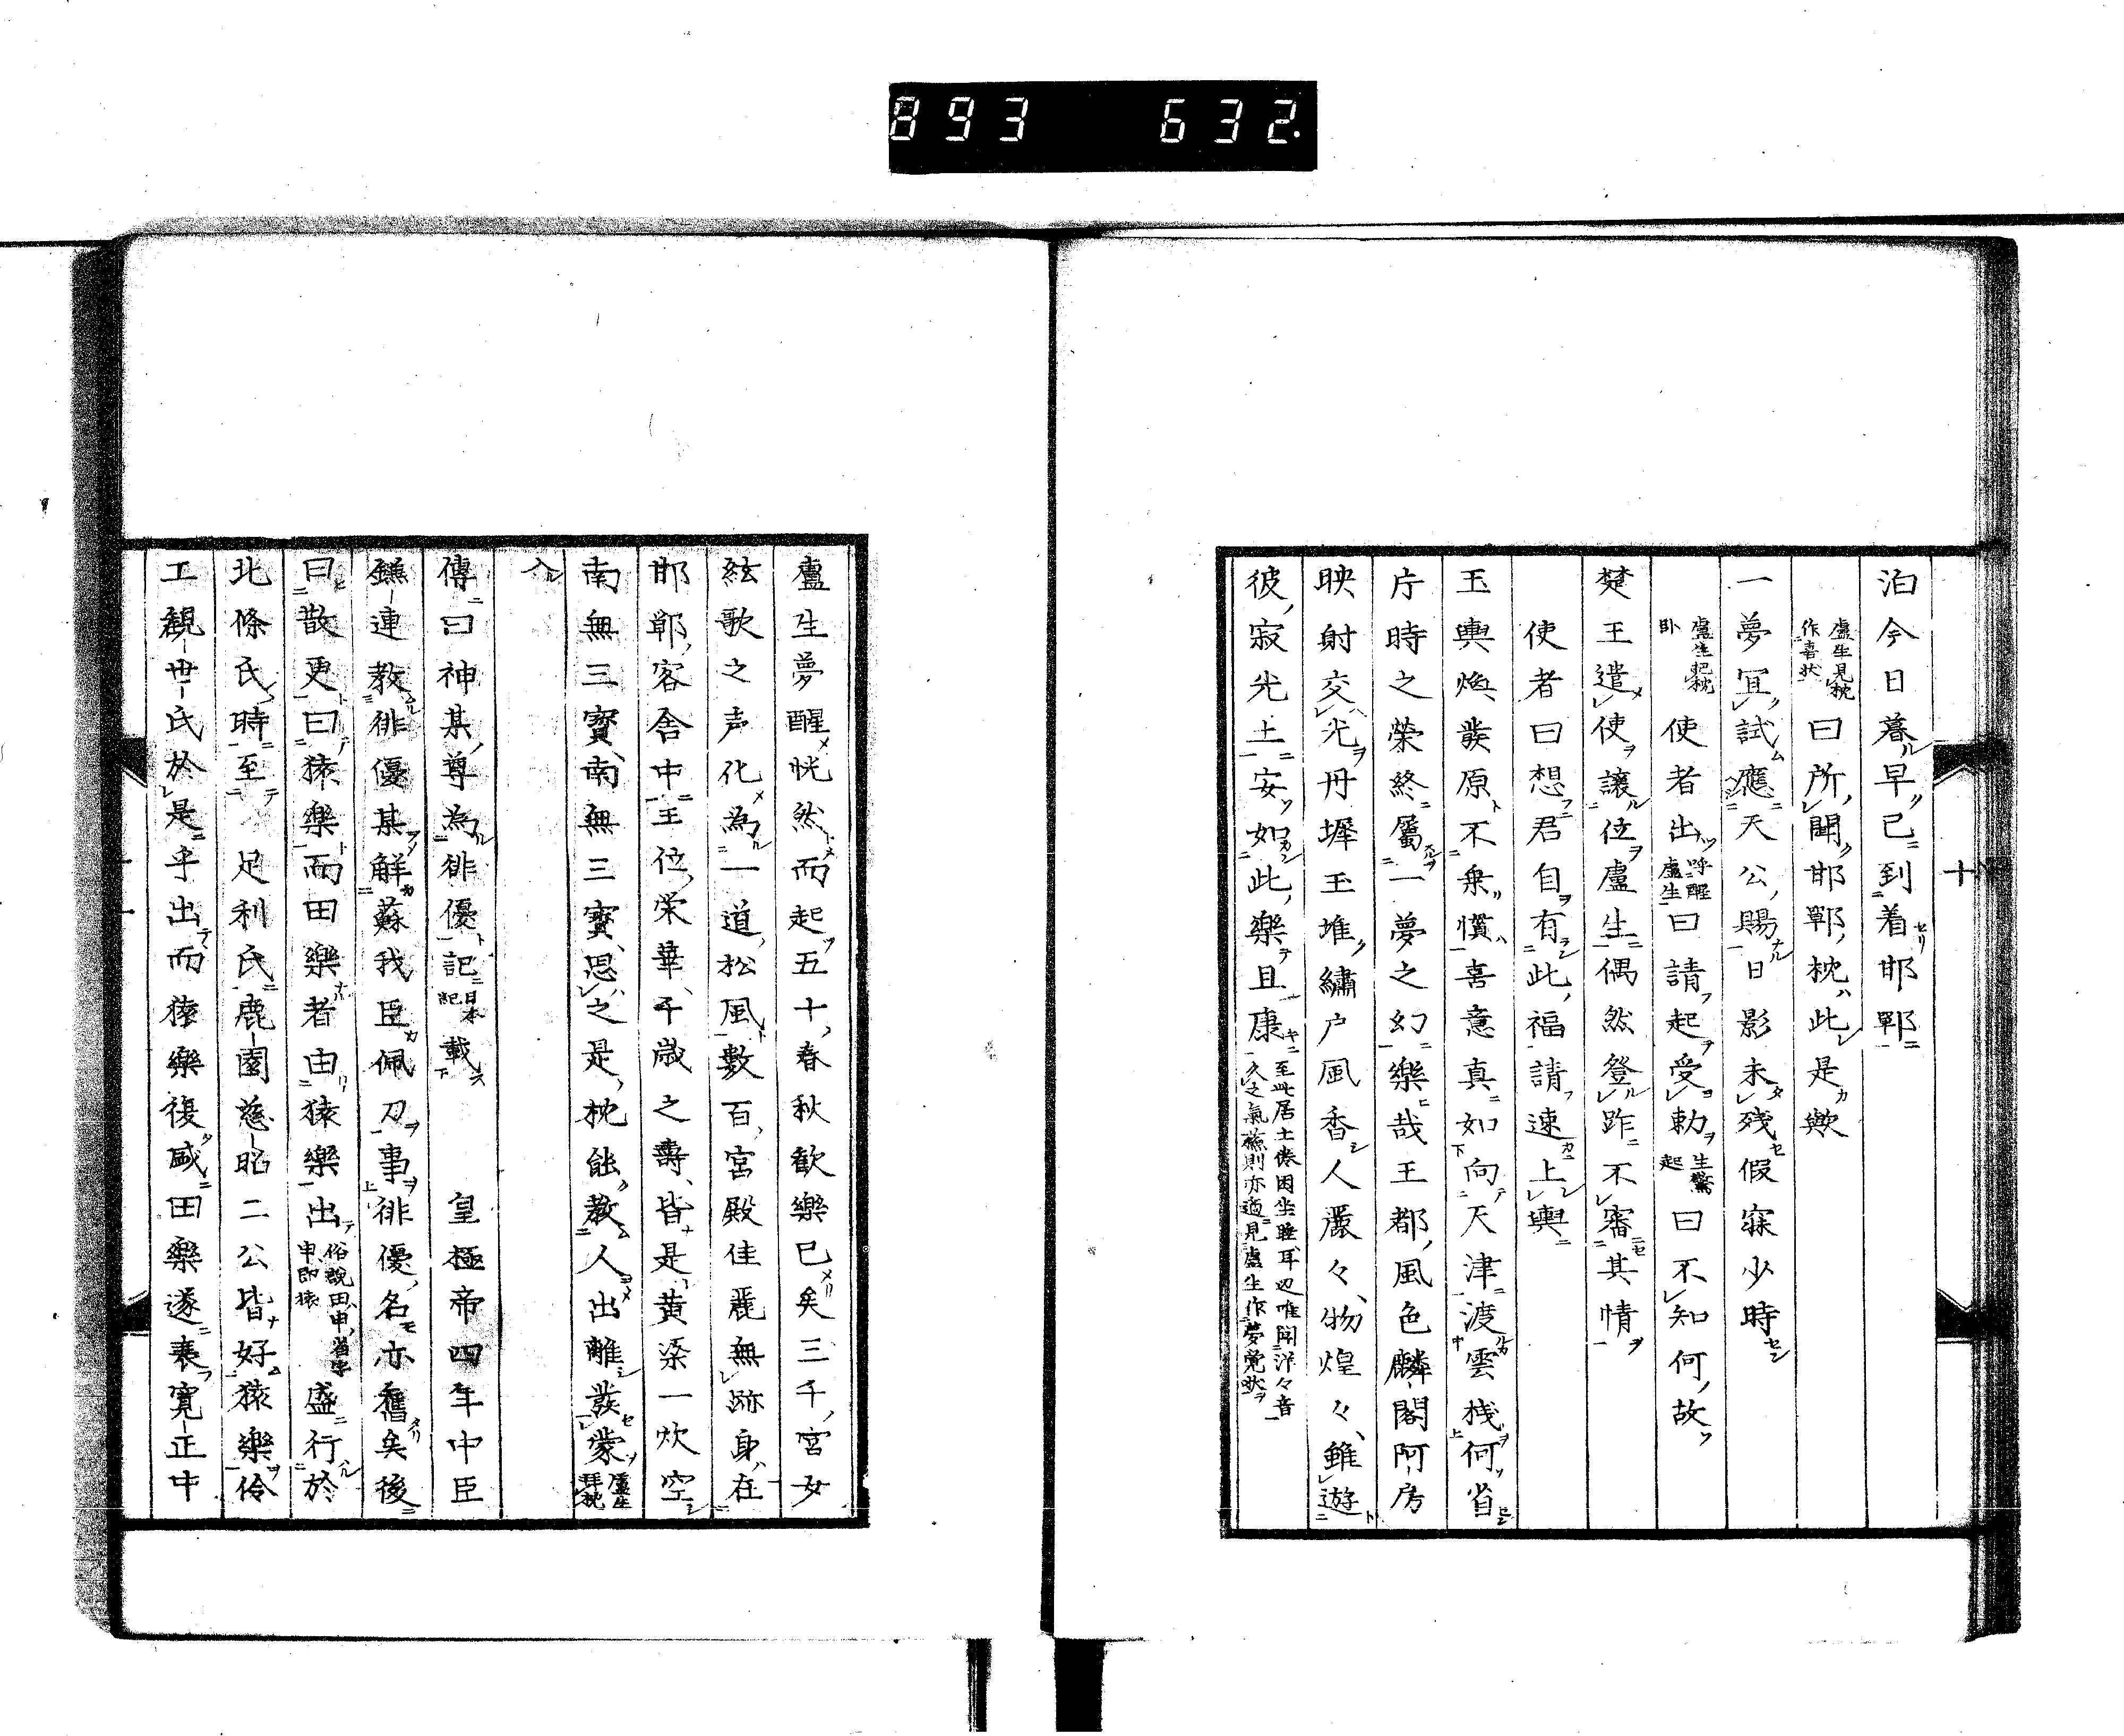 893 632.
十
泊今日暮早已到着邯鄲
盧生見枕作喜状 曰所聞邯鄲枕此是歟
一夢冝試應天公賜日影未残假寐少時
盧生把枕卧 使者出 呼醒盧生 曰請起受勅 生驚起 曰不知何故
楚王遣使讓位盧生偶然登跡不審其情
使者曰想君自有此福請速上輿
玉輿煥發原不乗慣喜意真如向天津渡雲棧何省
片時之榮終屬一夢之幻樂哉王都風色麟閣阿房
映射交光丹墀玉堆繡户風香人濃々物煌々雖遊
彼寂光土安如此樂且康 至此居士倦困坐睡耳辺唯聞洋々音久之氣蘇則亦適見盧生作夢覚状
盧生夢醒恍然而起五十春秋歓樂已矣三千宮女
絃歌之声化為一道松風數百宮殿佳麗無跡身在
邯鄲客舎中王位栄華千歳之壽皆是黄梁一炊空
南無三寳南無三寳思之是枕能教人出離發蒙 盧生拝枕
入
傳曰神某尊為俳優記 日本紀 載 皇極帝四年中臣
鎌連教俳優某解蘇我臣佩刀事俳優名亦舊矣後
曰散更曰猿樂而田樂者由猿樂出 俗説田申省字申即猿 盛行於
北條氏時至 足利氏鹿園慈昭二公皆好猿樂伶
工観世氏於是乎出而猿樂復盛田樂遂衰寛正中
十一